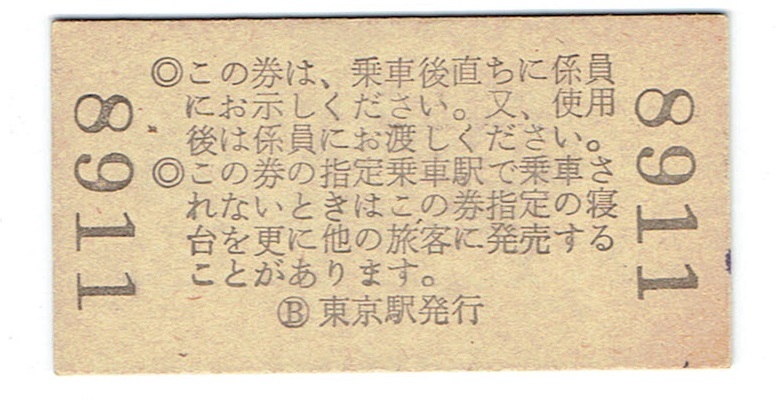 8911
◎この券は、乗車後直ちに係員
にお示しください。又、使用
後は係員にお渡しください。
◎この券の指定乗車駅で乗車さ
れないときはこの券指定の寝
台を更に他の旅客に発売する
ことがあります。
Ⓑ東京駅発行
8911